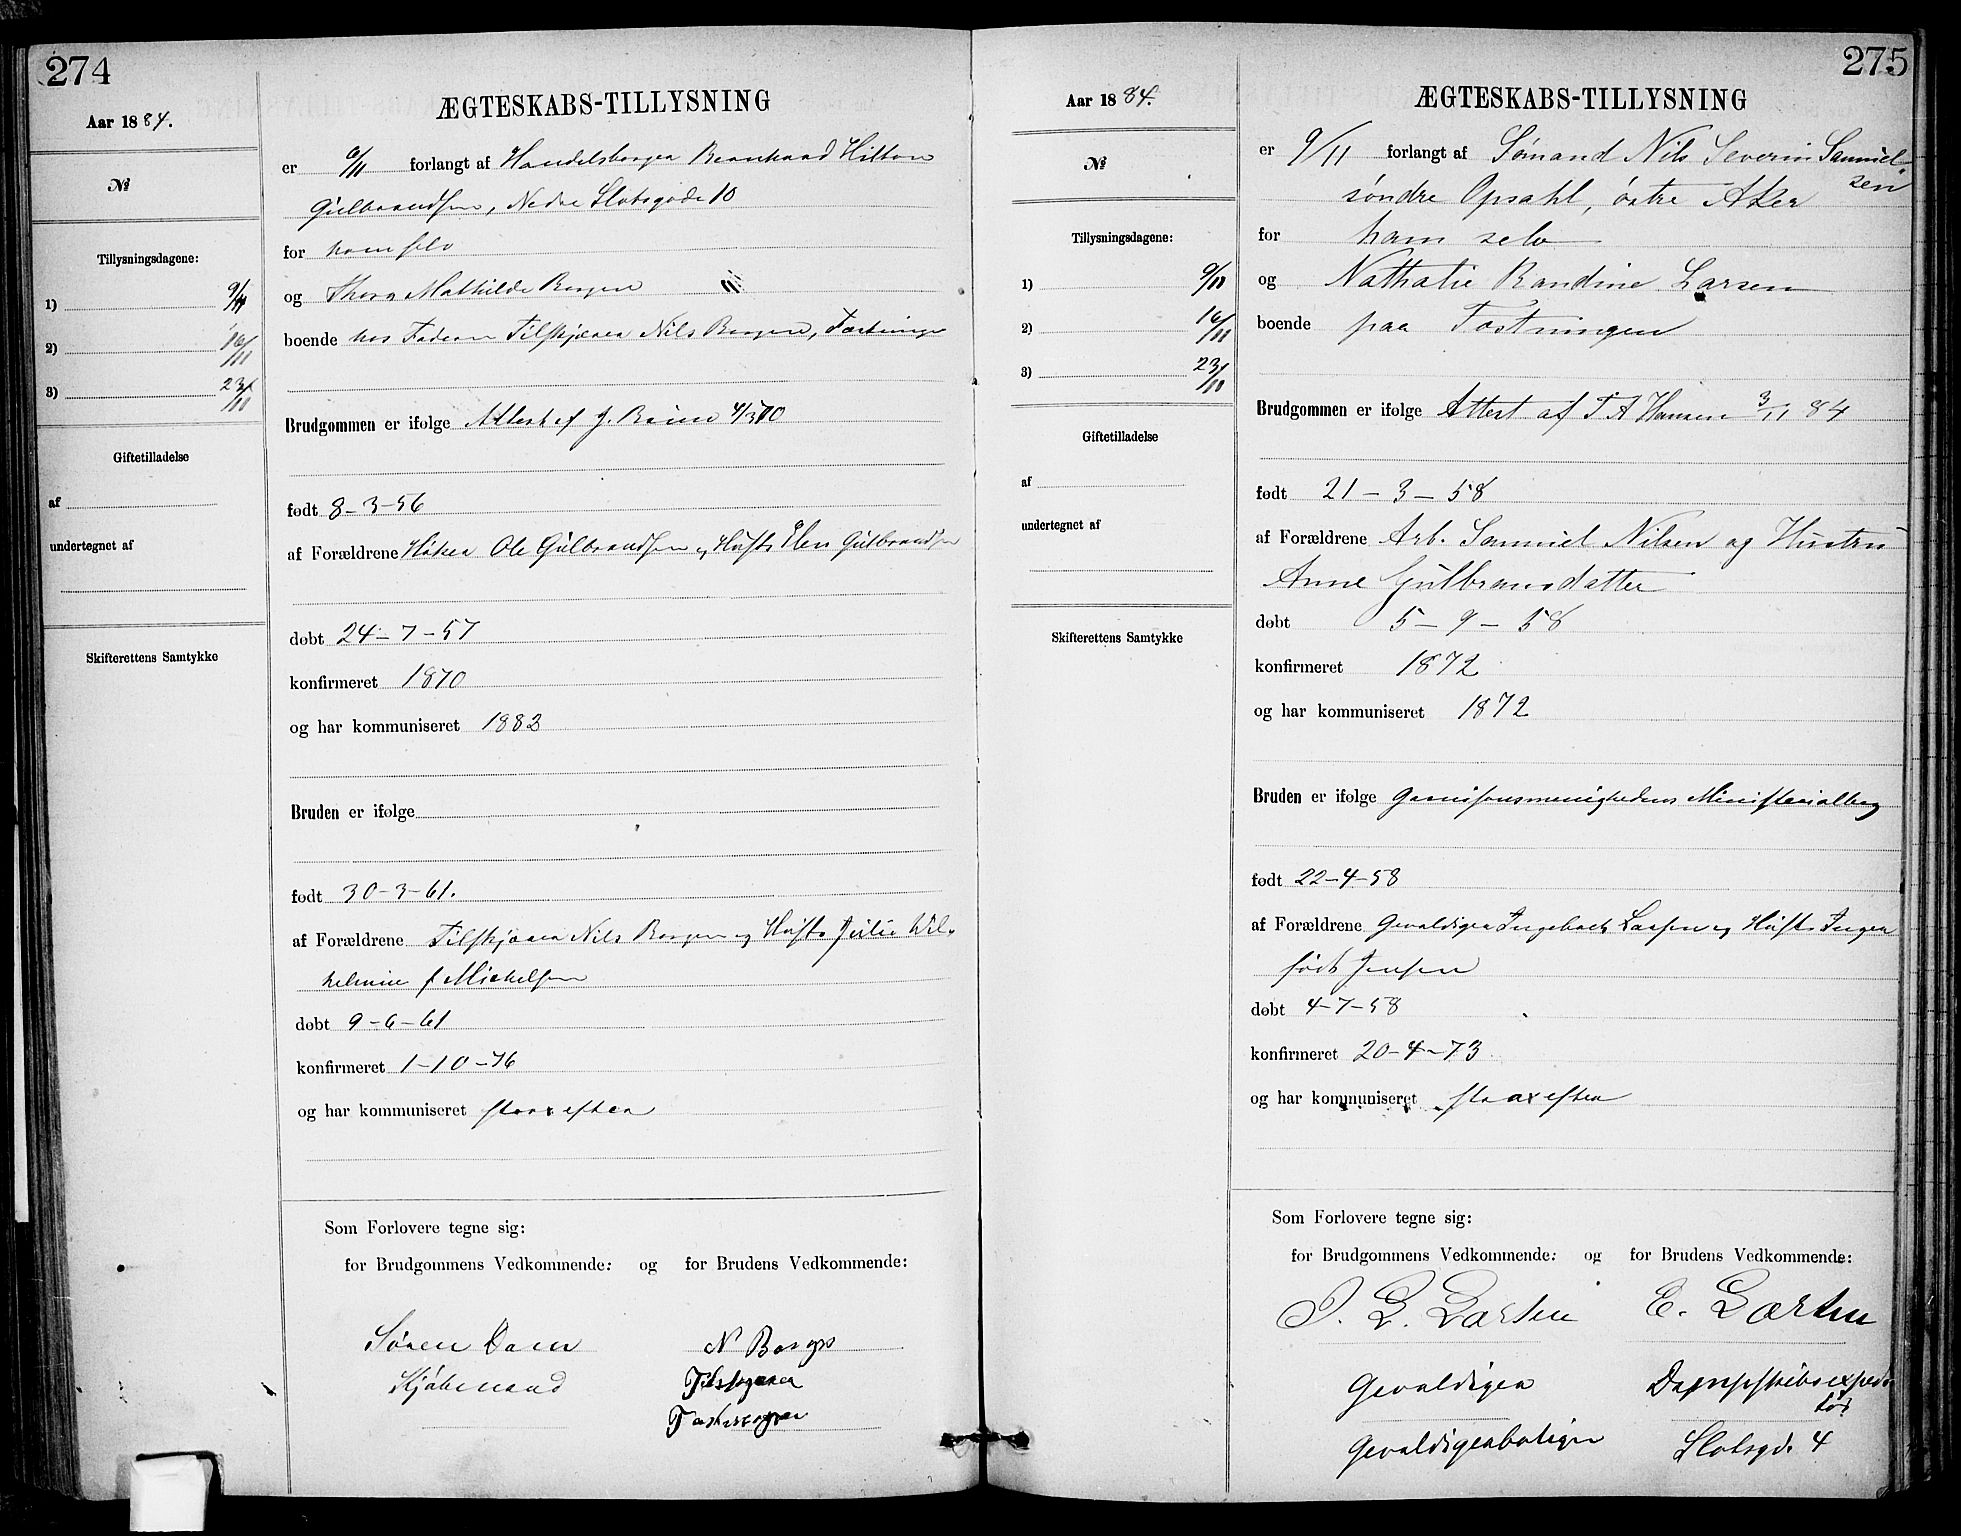 274
Aar 1884.
№
Tillysningsdagene:
1) 9/11
2) 16/11
3) 23/11
Giftetilladelse
af
undertegnet af
Skifterettens Samtykke
ÆGTESKABS-TILLYSNING
er 6/11 forlangt af Handelsborger Bernhard Hilton
Gulbrandsen, Nedre Slotsgade 10
for ham selv
og Thora Mathilde Borgen
boende hos Faderen Nils Borgen, Fæstningen
Brudgommen er ifølge Attest af J. 10
født 8-3-56
af Forældrene Høker Ole Gulbrandsen og Hustr Elen Gulbrandsen
døbt 24-7-57
konfirmeret 1870
og har kommuniseret 1882
Bruden er ifølge
født 30-3-61.
af Forældrene Nils Borgen og Hustr Julie Wil-
helmine f Michelsen
døbt 9-6-61
konfirmeret 1-10-76
og har kommuniseret strax efter
Som Forlovere tegne sig:
for Brudgommens Vedkommende: og for Brudens Vedkommende:
Søren Dam N Borgen
Kjøbmand
Fæstningen
275
Aar 1884.
№
Tillysningsdagene:
1) 9/11
2) 16/11
3) 23/11
Giftetilladelse
af
undertegnet af
Skifterettens Samtykke
ÆGTESKABS-TILLYSNING
er 9/11 forlangt af Sømand Nils Severin Samuel-
sen
søndre Opsahl, østre Aker
for ham selv
og Nathalie Randine Larsen
boende paa Fæstningen
Brudgommen er ifølge Attest af T A Hansen 3/11 84
født 21-3-58
af Forældrene Arb. Samuel Nilsen og Hustru
Anne Gulbransdatter
døbt 5-9-58
konfirmeret 1872
og har kommuniseret 1872
Bruden er ifølge Garnisonsmenighedens Ministerialbog
født 22-4-58
af Forældrene Gevaldiger Ingebret Larsen og Hustr Inger
født Jensen
døbt 4-7-58
konfirmeret 20-4-73
og har kommuniseret strax efter
Som Forlovere tegne sig:
for Brudgommens Vedkommende: og for Brudens Vedkommende:
I. L. Larsen E. Larsen
Gevaldiger Dampskibsexpedi-
tør
Gevaldigerboligen Slotsgd. 4